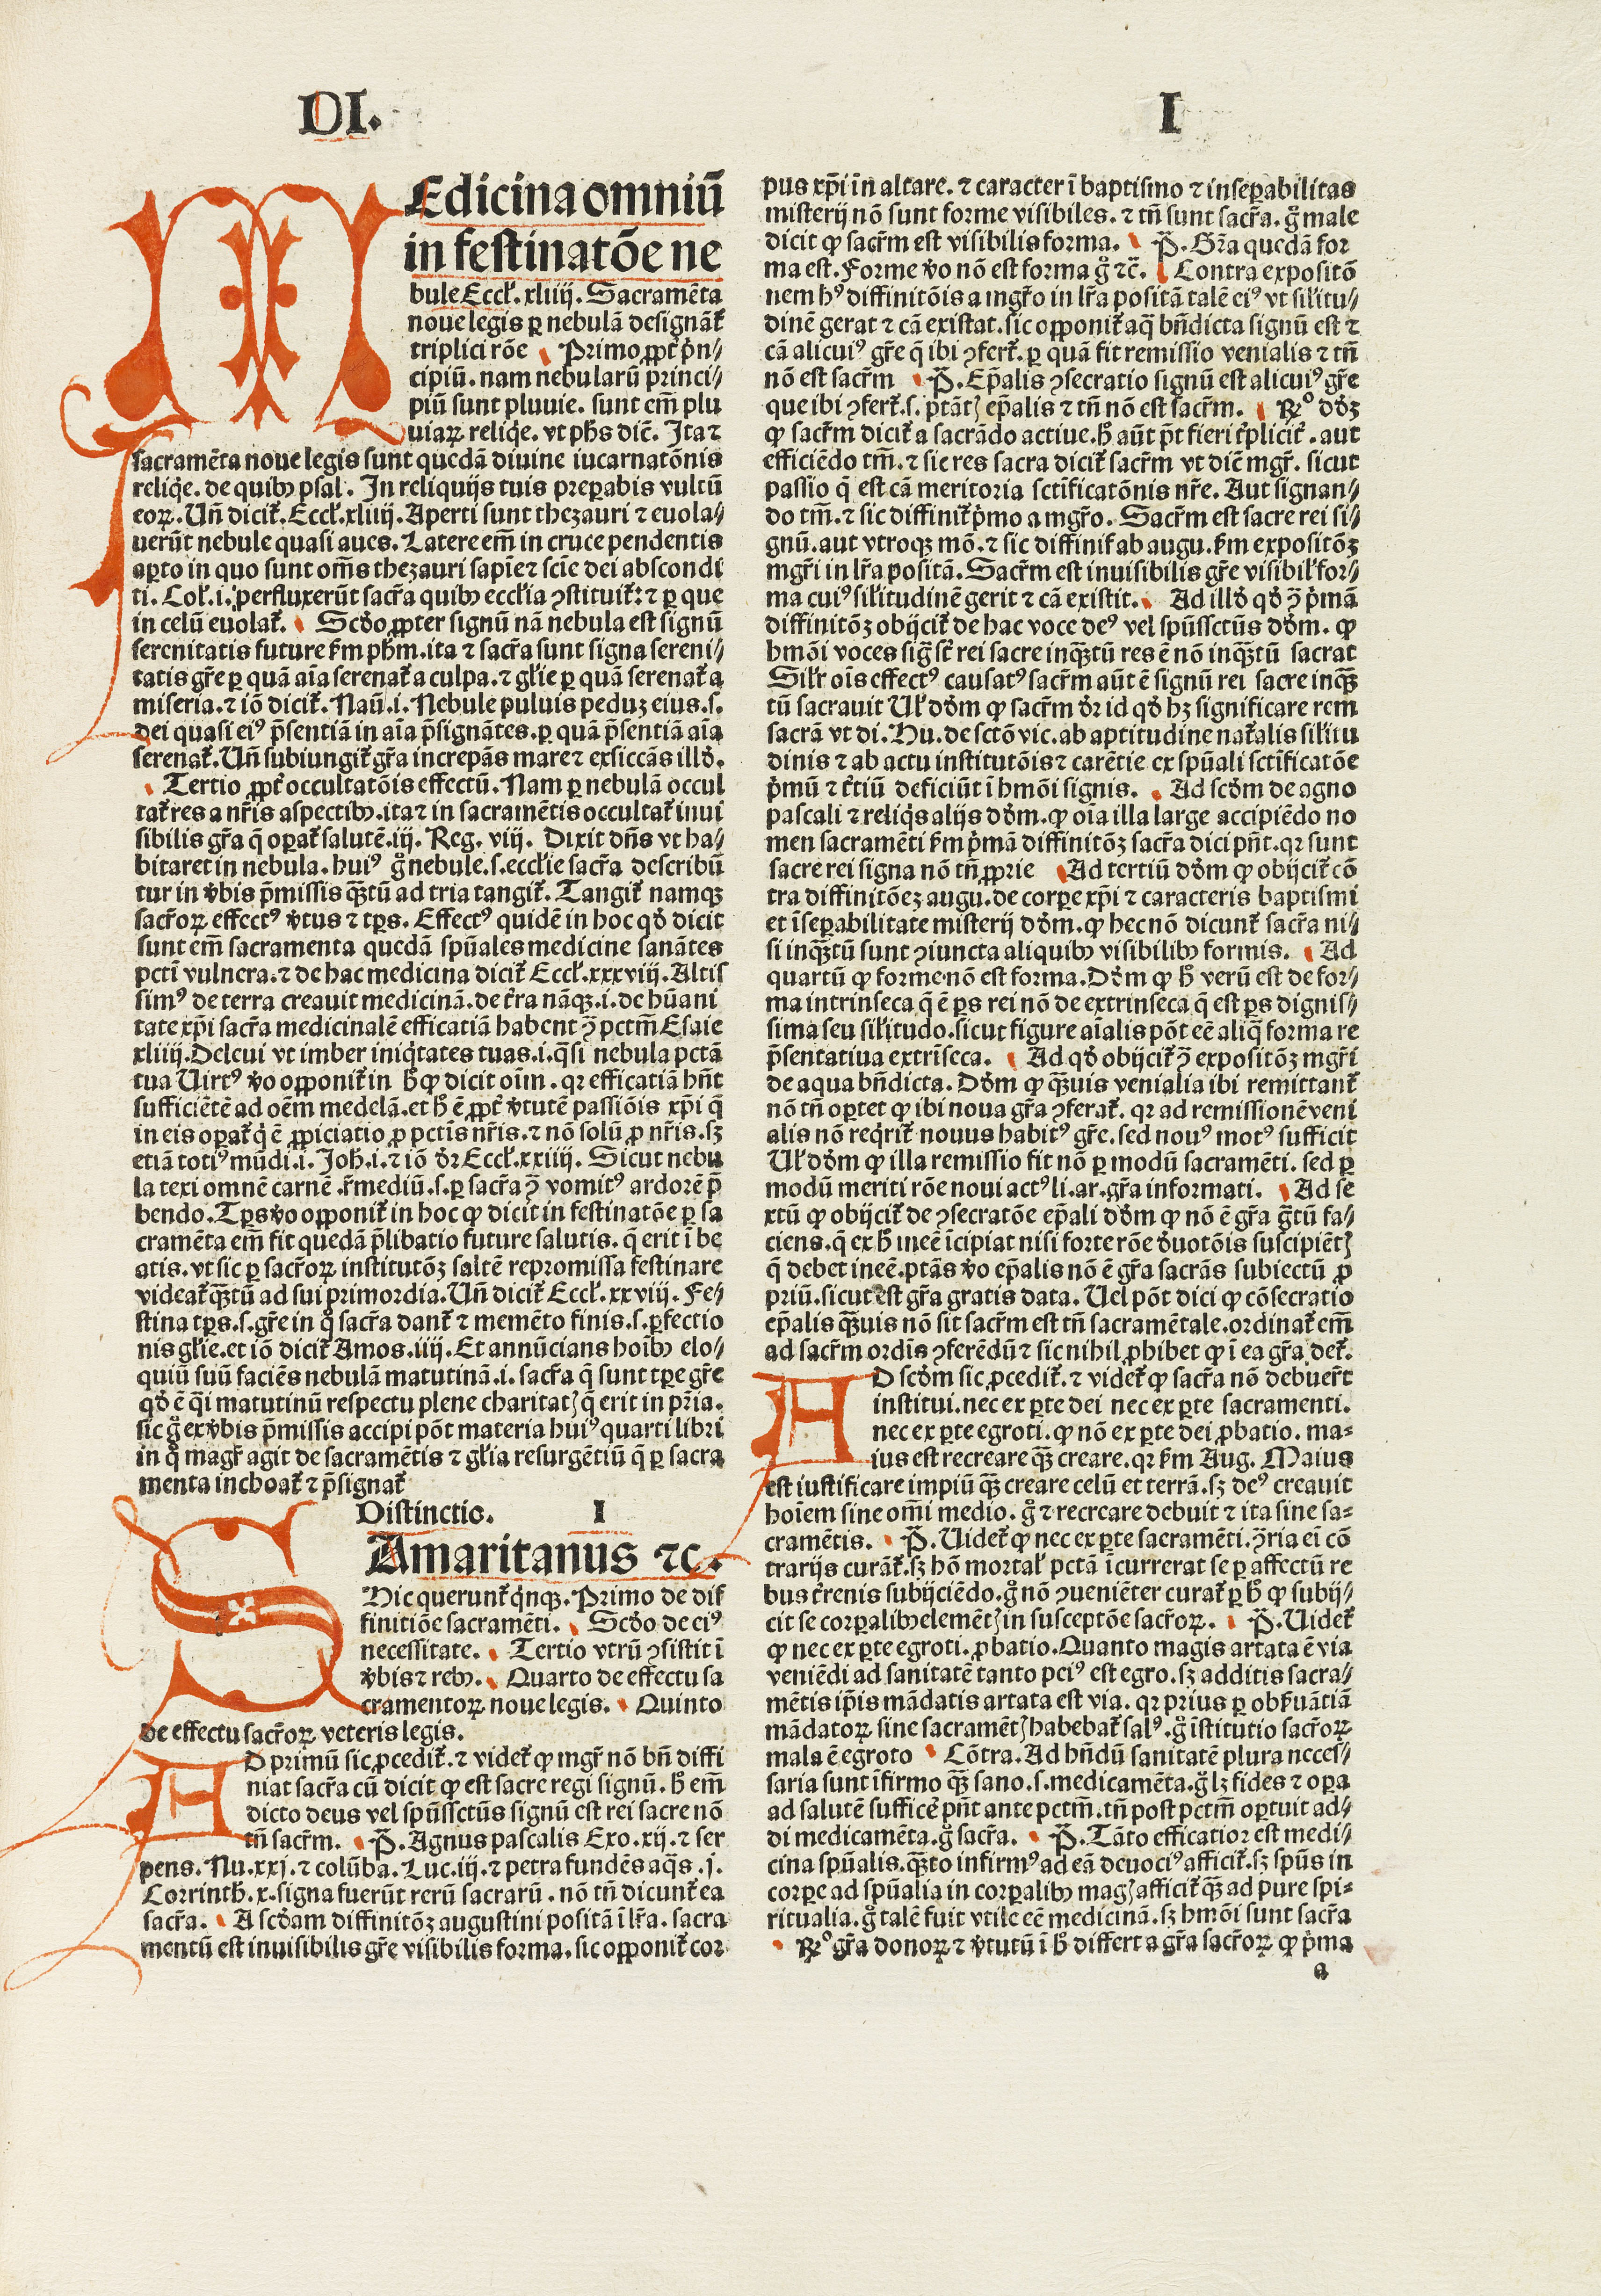 DI. I
MEdicina omniū
in festinatōe ne
bule Eccl̃. xliiij. Sacramēta
noue legis ꝑ nebulā designāt᷑
triplici rōe Primo ꝓpt̃ p̄n⸗
cipiū. nam nebularū princi⸗
piū sunt pluuie. sunt em̄ plu
uiaꝝ reliq̄e. vt ph̄s dic̄. Ita ⁊
sacramēta noue legis sunt quedā diuine iucarnatōnis
reliq̄e. de quibꝰ psal̄. In reliquijs tuis preꝑabis vultū
eoꝝ. Vn̄ dicit᷑. Eccl̃. xliiij. Aperti sunt thezauri ⁊ euola⸗
uerūt nebule quasi aues. Latere em̄ in cruce pendentis
aꝑto in quo sunt om̄s thezauri sapīe ⁊ scīe dei abscondi
ti. Col̃. i. perfluxerūt sacr̃a quibꝰ eccl̃ia ꝯstituit᷑: ⁊ ꝑ que
in celū euolat᷑. Scd̄o ꝓpter signū nā nebula est signū
serenitatis future s̃m ph̄m. ita ⁊ sacr̃a sunt signa sereni⸗
tatis gr̄e ꝑ quā aīa serenat᷑ a culpa. ⁊ gl̃ie ꝑ quā serenat᷑ a
miseria. ⁊ iō dicit᷑. Naū. i. Nebule puluis peduꝫ eius. s.
dei quasi eiꝰ p̄sentiā in aīa p̄signātes. ꝑ quā p̄sentiā aīa
serenat᷑. Vn̄ subiungit᷑ gr̄a increpās mare ⁊ exsiccās ill̄d.
Tertio ꝓpt̃ occultatōis effectū. Nam ꝑ nebulā occul
tat᷑ res a nr̄is aspectibꝰ. ita ⁊ in sacramētis occultat᷑ inui
sibilis gr̄a q̄ oꝑat᷑ salutē. iij. Reg. viij. Dixit dn̄s vt ha⸗
bitaret in nebula. huiꝰ g̊ nebule. s. eccl̃ie sacr̃a describū
tur in v̄bis p̄missis qꝫtū ad tria tangit᷑. Tangit᷑ namqꝫ
sacr̃oꝝ effectꝰ v̄tus ⁊ tp̄s. Effectꝰ quidē in hoc qd̄ dicit
sunt em̄ sacramenta quedā spūales medicine sanātes
pct̄i vulnera. ⁊ de hac medicina dicit᷑ Eccl̃. xxxviij. Altis
simꝰ de terra creauit medicinā. de t̃ra nāqꝫ. i. de hūani
tate xp̄i sacr̃a medicinalē efficatiā habent ꝯ̄ pctm̄ Esaie
xliiij. Deleui vt imber iniq̄tates tuas. i. q̄si nebula pctā
tua Uirtꝰ v̄o opponit᷑ in h̄ ꝙ dicit oīm. qꝛ efficatiā hn̄t
sufficiētē ad oēm medelā. et h̄ ē ꝓpt̃ v̄tutē passiōis xp̄i q̄
in eis oꝑat᷑ q̄ ē ꝓpiciatio ꝓ pctīs nr̄is. ⁊ nō solū ꝓ nr̄is. sꝫ
etiā totiꝰ mūdi. i. Joh̄. i. ⁊ iō dr̄ Eccl̃. xxiiij. Sicut nebu
la texi omnē carnē. r̄mediū. s. ꝑ sacr̃a ꝯ̄ vomitꝰ ardorē p̄
bendo. Tp̄s v̄o opponit᷑ in hoc ꝙ dicit in festinatōe ꝑ sa
cramēta em̄ fit quedā p̄libatio future salutis. q̄ erit ī be
atis. vt sic ꝑ sacr̃oꝝ institutōꝫ saltē repromissa festinare
videat᷑ qꝫtū ad sui primordia. Vn̄ dicit᷑ Eccl̃. xxviij. Fe⸗
stina tp̄s. s. gr̄e in q̊ sacr̃a dant᷑ ⁊ memēto finis. s. ꝑfectio
nis gl̃ie. et iō dicit᷑ Amos. iiij. Et annūcians hoībꝰ elo⸗
quiū suū faciēs nebulā matutinā. i. sacr̃a q̄ sunt tꝑe gr̄e
qd̄ ē q̄i matutinū respectu plene charitatꝭ q̄ erit in pr̄ia.
sic g̊ ex v̄bis p̄missis accipi pōt materia huiꝰ quarti libri
in q̊ magr̃ agit de sacramētis ⁊ gl̃ia resurgētiū q̄ ꝑ sacra
menta inchoat᷑ ⁊ p̄signat᷑
Distinctio. I
SAmaritanus ⁊c.
Hic querunt᷑ q̄nqꝫ. Primo de dif
finitiōe sacramēti. Scd̄o de eiꝰ
necessitate. Tertio vtrū ꝯsistit ī
v̄bis ⁊ rebꝰ. Quarto de effectu sa
cramentoꝝ noue legis. Quinto
de effectu sacr̃oꝝ veteris legis.
AD primū sic ꝓcedit᷑. ⁊ videt᷑ ꝙ mgr̃ nō bn̄ diffi
niat sacr̃a cū dicit ꝙ est sacre regi signū. h̄ em̄
dicto deus vel spūssctūs signū est rei sacre nō
tn̄ sacr̃m. P̄. Agnus pascalis Exo. xij. ⁊ ser
pens. Nu. xxj. ⁊ colūba. Luc. iij. ⁊ petra fundēs aq̄s. j.
Corrinth̄. x. signa fuerūt rerū sacrarū. nō tn̄ dicunt᷑ ea
sacr̃a. A scd̄am diffinitōꝫ augustini positā ī lr̄a. sacra
mentū est inuisibilis gr̄e visibilis forma. sic opponit᷑ cor
pus xp̄i īn altare. ⁊ caracter ī baptismo ⁊ inseꝑabilitas
misterij nō sunt forme visibiles. ⁊ tn̄ sunt sacr̃a. g̊ male
dicit ꝙ sacr̃m est visibilis forma. P̄. Gr̄a quedā for
ma est. Forme v̄o nō est forma g̊ ⁊c̄. Contra expositō
nem hꝰ diffinitōis a mgr̃o in lr̄a positā talē eiꝰ vt sil̃itu⸗
dinē gerat ⁊ cā existat. sic opponit᷑ aq̄ bn̄dicta signū est ⁊
cā alicuiꝰ gr̄e q̄ ibi ꝯfert᷑. ꝑ quā fit remissio venialis ⁊ tn̄
nō est sacr̃m P̄. Ep̄alis ꝯsecratio signū est alicuiꝰ gr̄e
que ibi ꝯfert᷑. s. ptātꝭ ep̄alis ⁊ tn̄ nō est sacr̃m. Rꝰ dd̄ꝫ
ꝙ sacr̃m dicit᷑ a sacrādo actiue. h̄ aūt p̄t fieri tr̄plicit᷑. aut
efficiēdo tm̄. ⁊ sic res sacra dicit᷑ sacr̃m vt dic̄ mgr̃. sicut
passio q̄ est cā meritoria sctīficatōnis nr̄e. Aut signan⸗
do tm̄. ⁊ sic diffinit᷑ p̄mo a mgr̃o. Sacr̃m est sacre rei si⸗
gnū. aut vtroqꝫ mō. ⁊ sic diffinit᷑ ab augu. s̃m expositōꝫ
mgr̃i in lr̄a positā. Sacr̃m est inuisibilis gr̄e visibil̃ for⸗
ma cuiꝰ sil̃itudinē gerit ⁊ cā existit. Ad ill̄d qd̄ ꝯ̄ p̄mā
diffinitōꝫ obijcit᷑ de hac voce deꝰ vel spūssctūs dd̄m. ꝙ
hmōi voces sig̃ sc̄t rei sacre inqꝫtū res ē nō inqꝫtū sacrat
Sil̃r oīs effectꝰ causatꝰ sacr̃m aūt ē signū rei sacre inqꝫ
tū sacrauit Ul̃ dd̄m ꝙ sacr̃m dr̄ id qd̄ hꝫ significare rem
sacrā vt di. Hu. de sctō vic. ab aptitudine nat᷑alis sil̃itu
dinis ⁊ ab actu institutōis ⁊ carētie ex spūali sctīficatōe
p̄mū ⁊ t̃tiū deficiūt ī hmōi signis. Ad scd̄m de agno
pascali ⁊ reliq̄s alijs dd̄m. ꝙ oīa illa large accipiēdo no
men sacramēti s̃m p̄mā diffinitōꝫ sacr̃a dici pn̄t. qꝛ sunt
sacre rei signa nō tn̄ ꝓprie Ad tertiū dd̄m ꝙ obijcit᷑ cō
tra diffinitōeꝫ augu. de corꝑe xp̄i ⁊ caracteris baptismi
et īseꝑabilitate misterij dd̄m. ꝙ hec nō dicunt᷑ sacr̃a ni⸗
si inqꝫtū sunt ꝯiuncta aliquibꝰ visibilibꝰ formis. Ad
quartū ꝙ forme nō est forma. Dd̄m ꝙ h̄ verū est de for⸗
ma intrinseca q̄ ē ꝑs rei nō de extrinseca q̄ est ꝑs dignis⸗
sima seu sil̃itudo. sicut figure aīalis pōt eē aliq̄ forma re
p̄sentatiua extrīseca. Ad qd̄ obijcit᷑ ꝯ̄ expositōꝫ mgr̃i
de aqua bn̄dicta. Dd̄m ꝙ qꝫuis venialia ibi remittant᷑
nō tn̄ oꝑtet ꝙ ibi noua gr̄a ꝯferat᷑. qꝛ ad remissionē veni
alis nō req̄rit᷑ nouus habitꝰ gr̄e. sed nouꝰ motꝰ sufficit
Ul̃ dd̄m ꝙ illa remissio fit nō ꝑ modū sacramēti. sed ꝑ
modū meriti rōe noui actꝰ li. ar. gr̄a informati. Ad se
xtū ꝙ obijcit᷑ de ꝯsecratōe ep̄ali dd̄m ꝙ nō ē gr̄a g̃tū fa⸗
ciens. q̄ ex h̄ ineē īcipiat nisi forte rōe d̄uotōis suscipiētꝭ
q̄ debet ineē. ptās v̄o ep̄alis nō ē gr̄a sacrās subiectū ꝓ
priū. sicut est gr̄a gratis data. Uel pōt dici ꝙ cōsecratio
ep̄alis qꝫuis nō sit sacr̃m est tn̄ sacramētale. ordinat᷑ em̄
ad sacr̃m ordīs ꝯferēdū ⁊ sic nihil ꝓhibet ꝙ ī ea gr̄a det᷑.
AD scd̄m sic ꝓcedit᷑. ⁊ videt᷑ ꝙ sacr̃a nō debuer̄t
institui. nec ex ꝑte dei nec ex ꝑte sacramenti.
nec ex ꝑte egroti. ꝙ nō ex ꝑte dei ꝓbatio. ma⸗
ius est recreare qꝫ creare. qꝛ s̃m Aug. Maius
est iustificare impiū qꝫ creare celū et terrā. sꝫ deꝰ creauit
hoīem sine om̄i medio. g̊ ⁊ recreare debuit ⁊ ita sine sa⸗
cramētis. P̄. Uidet᷑ ꝙ nec ex ꝑte sacramēti. ꝯ̄ria eī cō
trarijs curāt᷑. sꝫ hō mortal̃ pctā īcurrerat se ꝑ affectū re
bus t̃renis subijciēdo. g̊ nō ꝯueniēter curat᷑ ꝑ h̄ ꝙ subij⸗
cit se corꝑalibꝰ elemētꝭ in susceptōe sacr̃oꝝ. P̄. Uidet᷑
ꝙ nec ex ꝑte egroti. ꝓbatio. Quanto magis artata ē via
veniēdi ad sanitatē tanto peiꝰ est egro. sꝫ additis sacra⸗
mētis ip̄is mādatis artata est via. qꝛ prius ꝑ obs̃uātiā
mādatoꝝ sine sacramētꝭ habebat᷑ salꝰ. g̊ īstitutio sacr̃oꝝ
mala ē egroto Cōtra. Ad hn̄dū sanitatē plura neces⸗
saria sunt īfirmo qꝫ sano. s. medicamēta. g̊ lꝫ fides ⁊ oꝑa
ad salutē sufficē pn̄t ante pctm̄. tn̄ post pctm̄ oꝑtuit ad⸗
di medicamēta. g̊ sacr̃a. P̄. Tāto efficatior est medi⸗
cina spūalis. qꝫto infirmꝰ ad eā deuociꝰ afficit᷑. sꝫ spūs in
corꝑe ad spūalia in corꝑalibꝰ magꝭ afficit᷑ qꝫ ad pure spi⸗
ritualia. g̊ talē fuit vtile eē medicinā. sꝫ hmōi sunt sacr̃a
Rꝰ gr̄a donoꝝ ⁊ v̄tutū ī h̄ differt a gr̄a sacr̃oꝝ ꝙ p̄ma
a